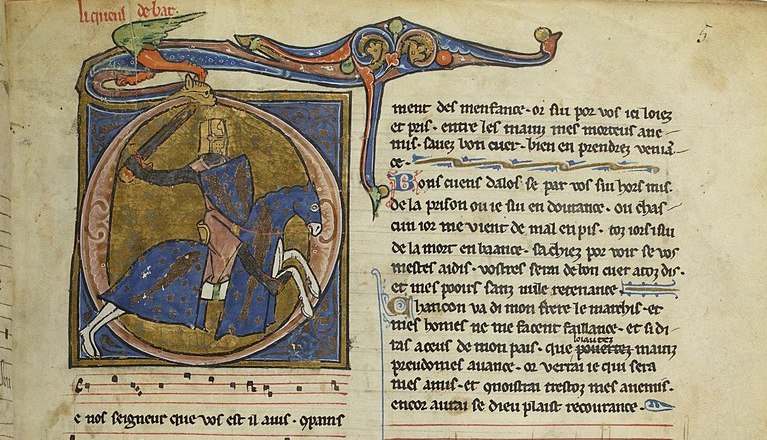 li quens de bar.
5
e nos seigneur que vos est il auis. Qrans
ment des menfance. or sui por vos ici loiez
et pris. entre les mains mes morteus ane
mis. sauez bon cuer. bien en prendrez venia
ce.
Bons cuens dalos se par vos sui hors mis
de la prison ou ie sui en doutance. ou chas
cun ior me vient de mal en pis. toz iors i sui
de la mort en baance. sachiez por voir se vos
mestes aidis. vostres serai de bon cuer a toz dis.
et mes pooirs sanz nulle retenance.
Chancon va di mon frere le marchis. et
mes homes ne me facent faillance. et si di
ras a ceus de mon pais. que
loiautez
pouertez mainz
preudomes auance. or verrai ie qui sera
mes amis. et quoistrai trestoz mes anemis.
encor aurai se dieu plaist recourance.